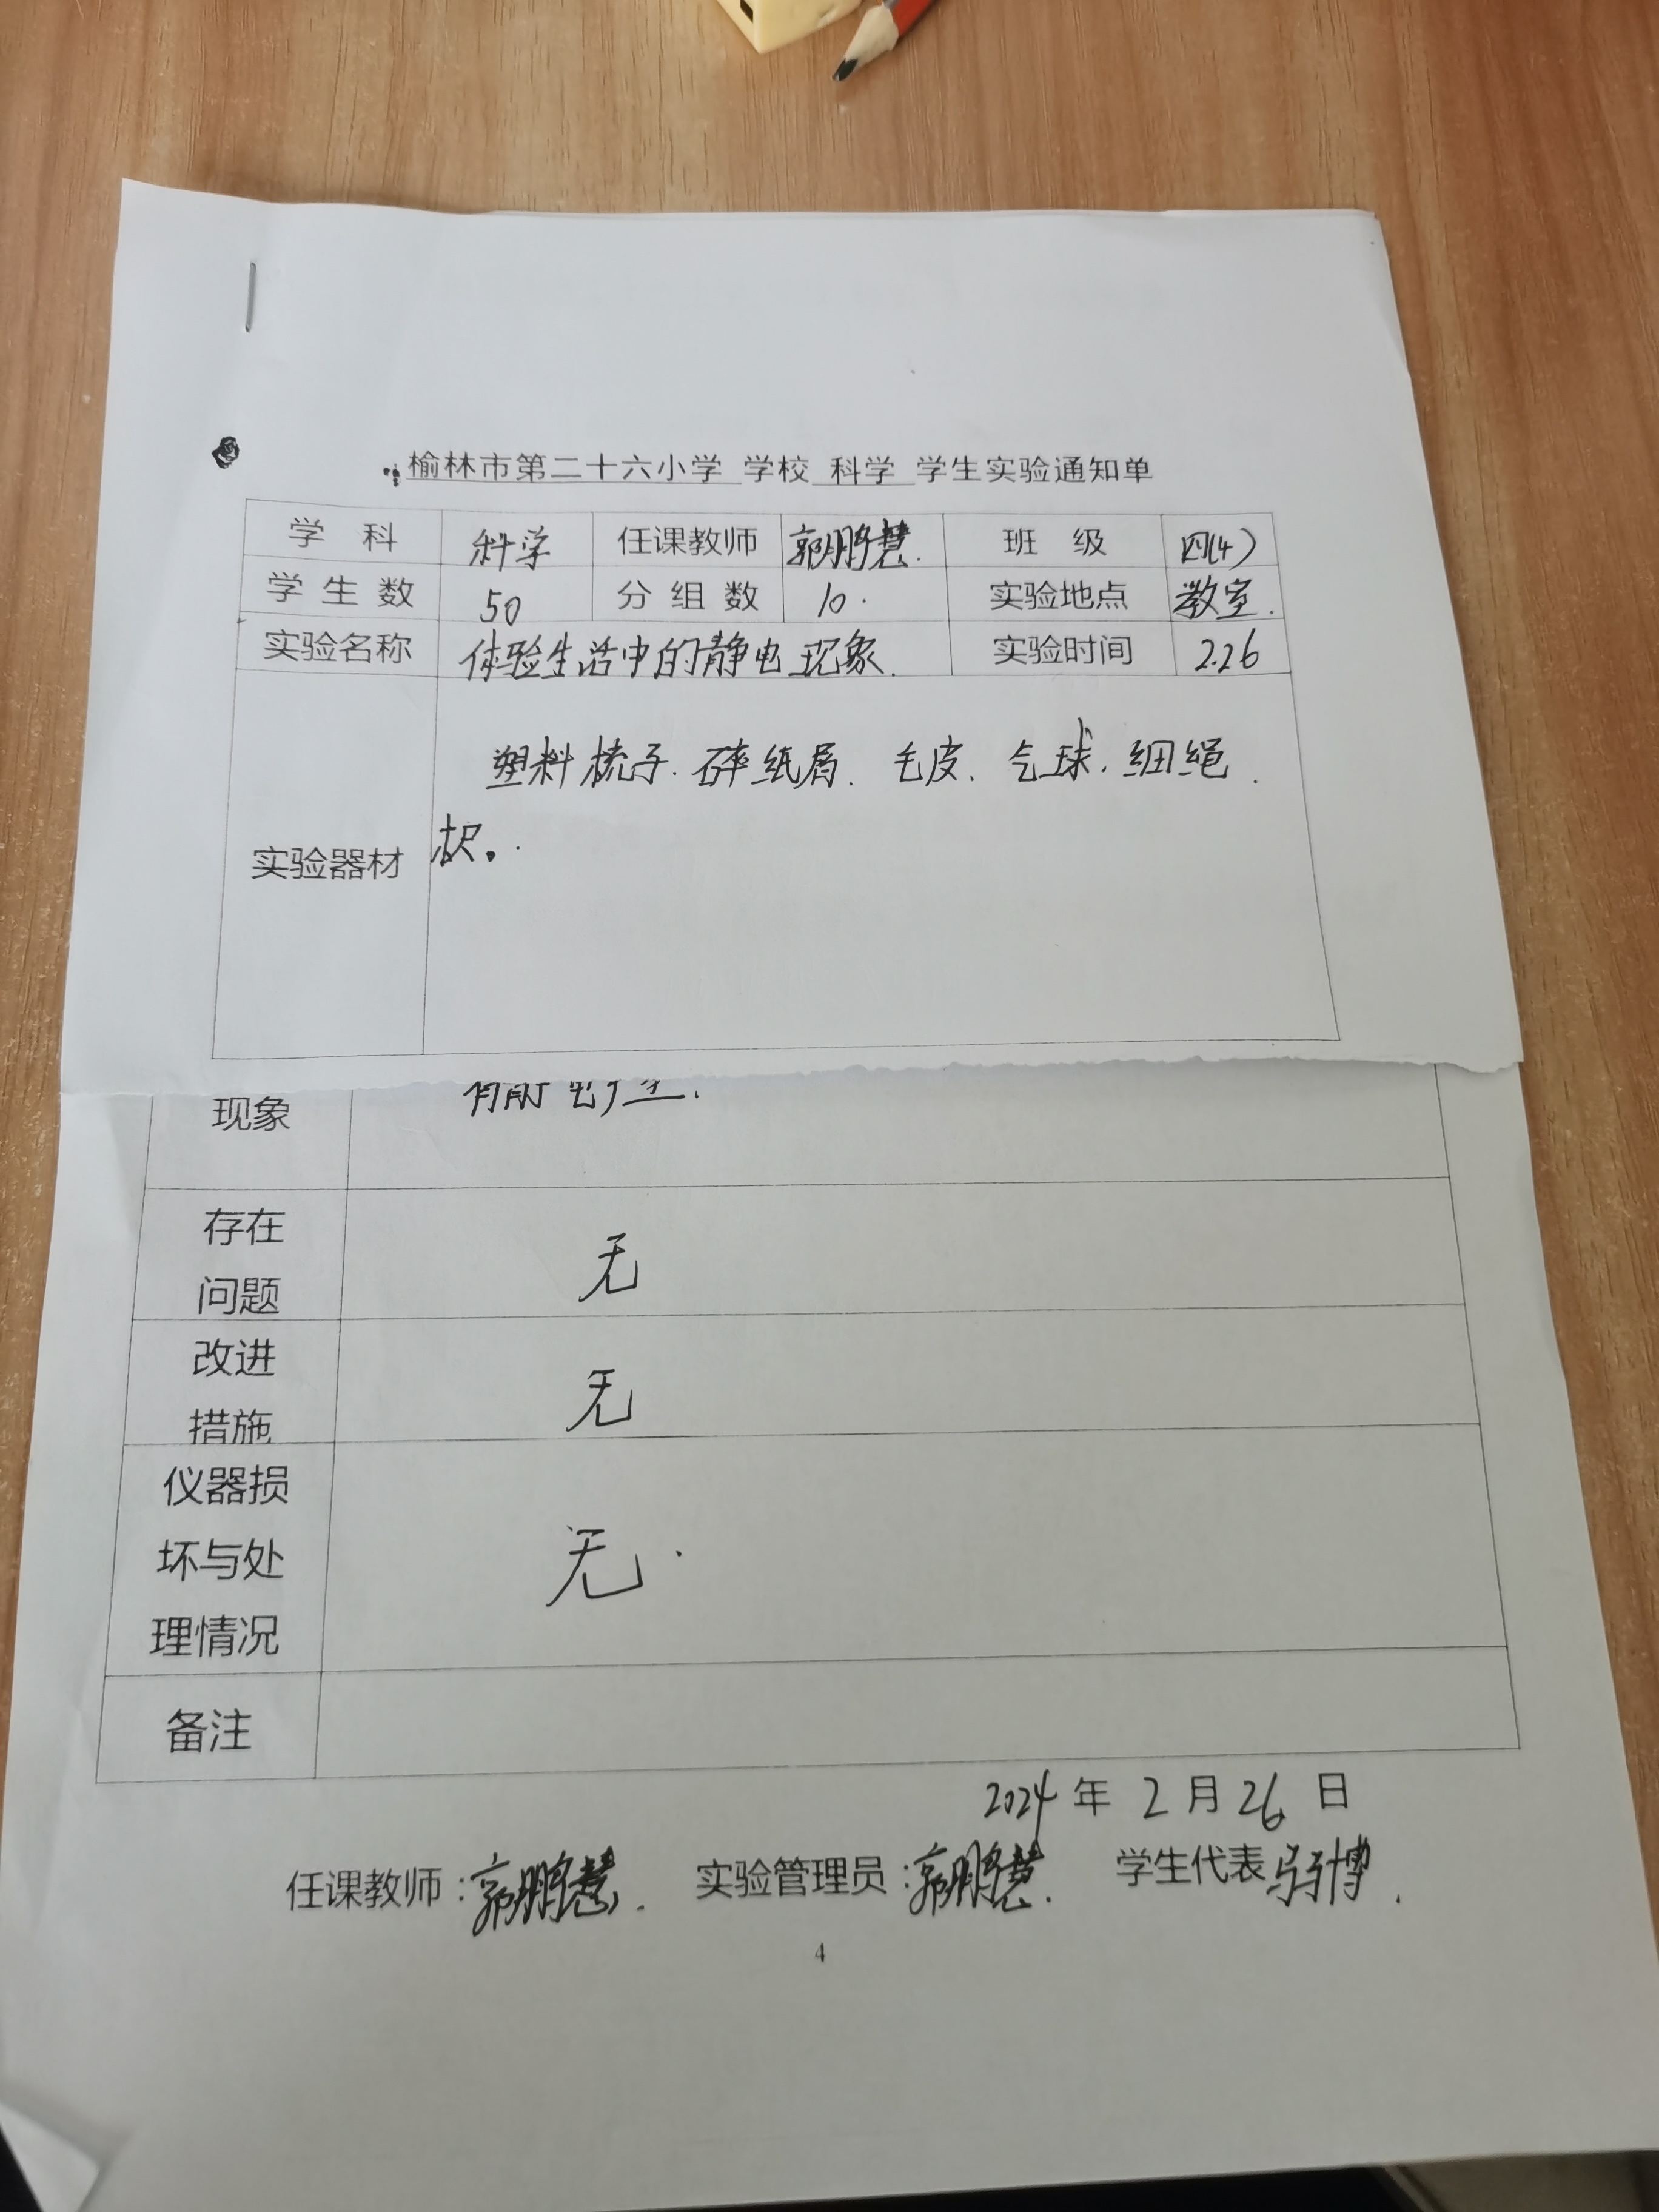 榆林市第二十六小学 学校 科学 学生实验通知单
学 科 科学 任课教师 郭鹏慧. 班 级 四(4)
学 生 数 50 分 组 数 10. 实验地点 教室.
实验名称 体验生活中的静电现象. 实验时间 2.26
塑料梳子. 碎纸屑. 毛皮. 气球. 细绳.
实验器材
现象
存在
问题 无
改进
措施 无
仪器损
坏与处 无.
理情况
备注
2024 年 2 月 26 日
任课教师:郭鹏慧. 实验管理员:郭鹏慧. 学生代表
4